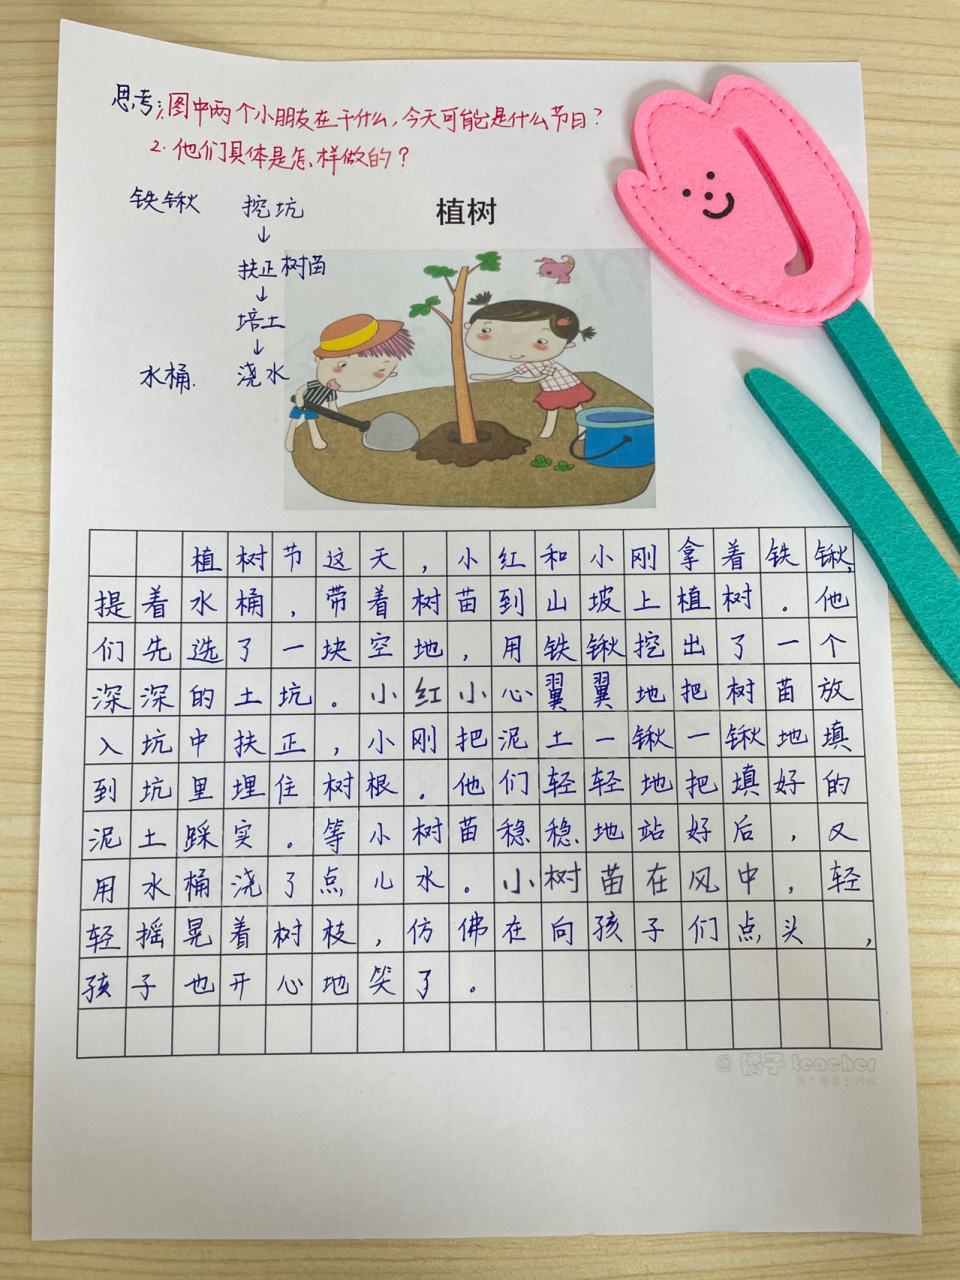 思考:图中两个小朋友在干什么,今天可能是什么节日?
2. 他们具体是怎么样做的?
铁锹 挖坑
植树
↓
扶正树苗
↓
培土
↓
水桶. 浇水
植树节这天,小红和小刚拿着铁锹,
提着水桶,带着树苗到山坡上植树。他
们先选了一块空地,用铁锹挖出了一个
深深的土坑。小红小心翼翼地把树苗放
入坑中扶正,小刚把泥土一锹一锹地填
到坑里埋住树根。他们轻轻地把填好的
泥土踩实。等小树苗稳稳地站好后,又
用水桶浇了点儿水。小树苗在风中,轻
轻摇晃着树枝,仿佛在向孩子们点头,
孩子也开心地笑了。
@橘子teacher